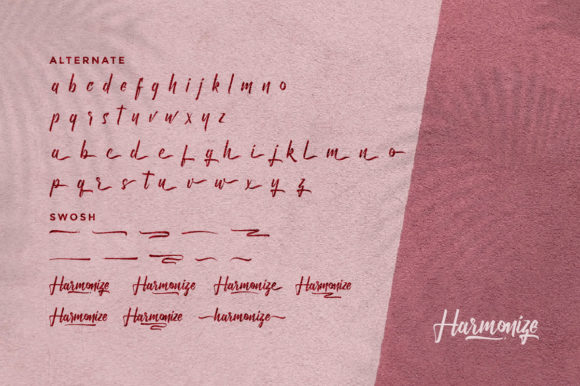 ALTERNATE
a b c d e f g h i j k l m n o
p q r s t u v w x y z
a b c d e f g h i j k l m n o
p q r s t u v w x y z
SWOSH
Harmonize Harmonize Harmonize Harmonize
Harmonize Harmonize harmonize
Harmonize